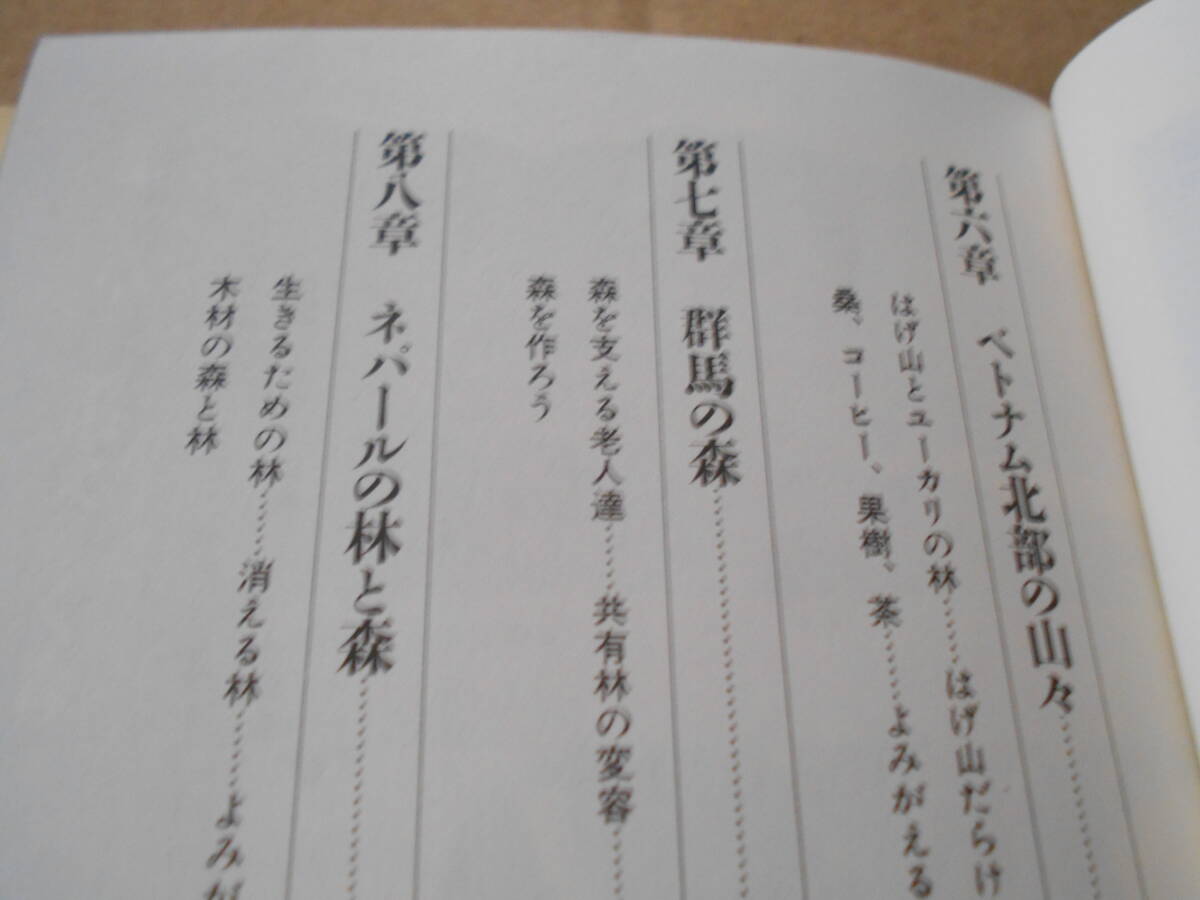 第六章　ベトナム北部の山々……
はげ山とユーカリの林……はげ山だらけ
桑、コーヒー、果樹、茶……よみがえる
第七章　群馬の森……
森を支える老人達……共有林の変容……
森を作ろう
第八章　ネパールの林と森……
生きるための林……消える林……よみが
木材の森と林